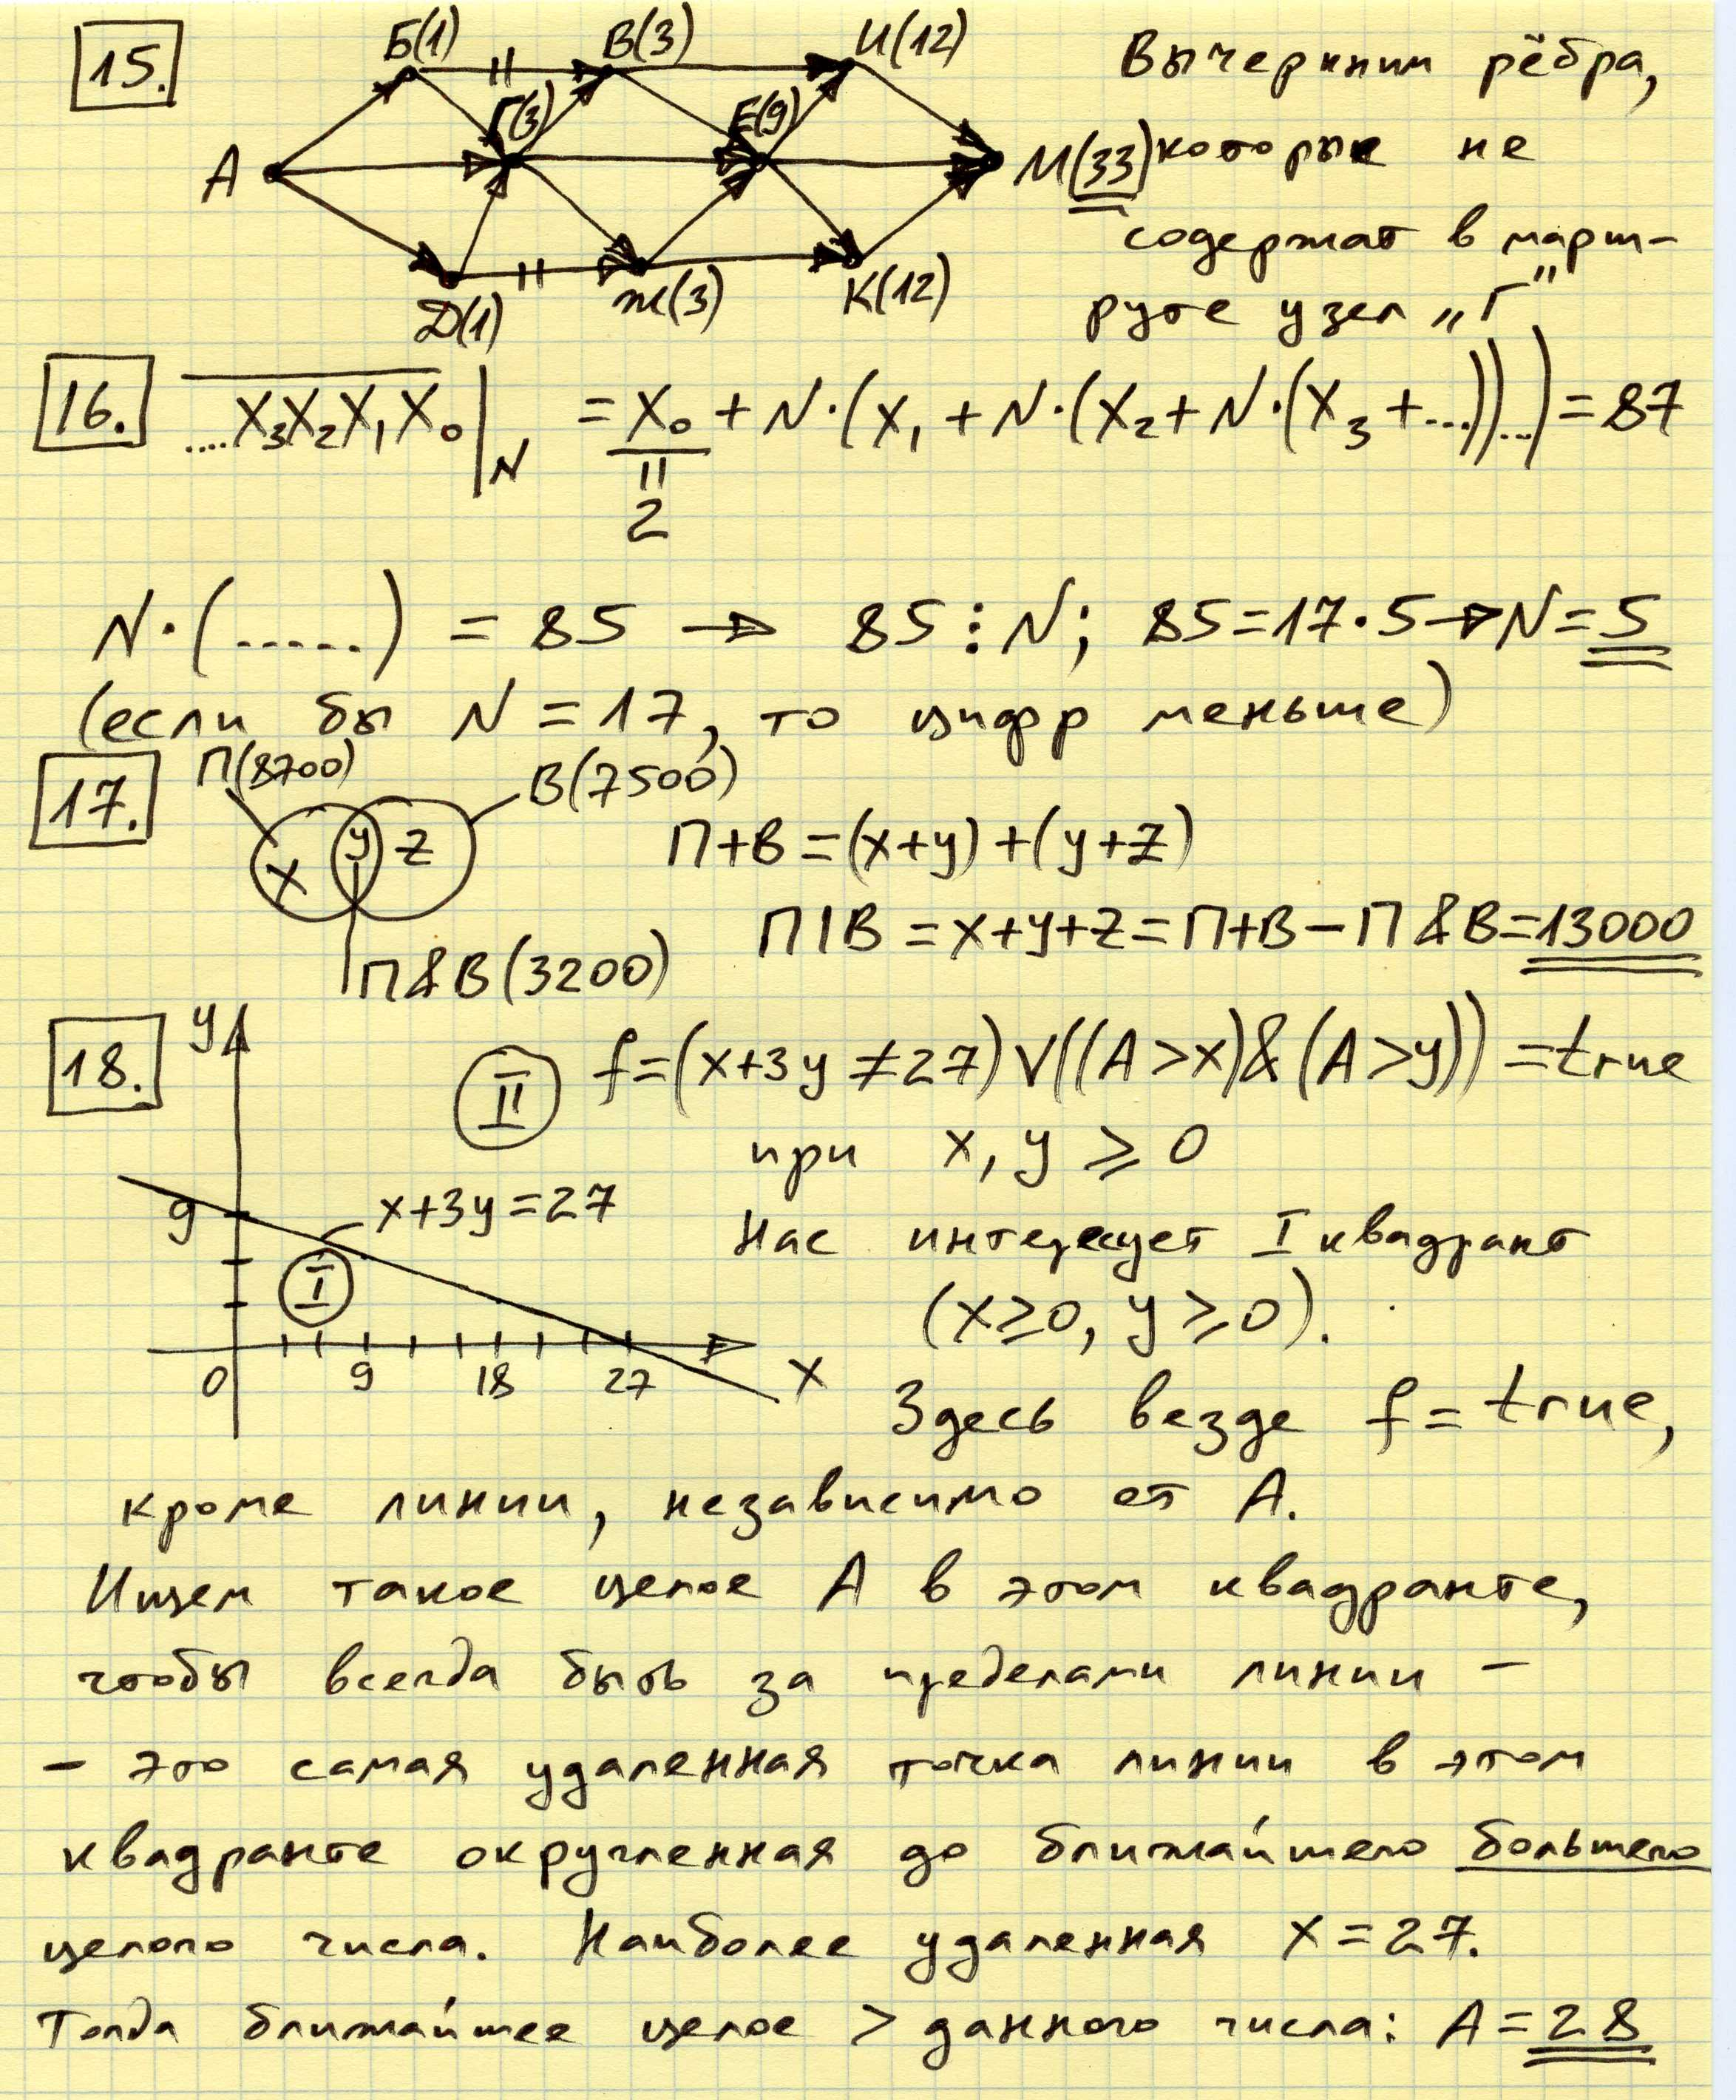 15.
Б(1) В(3) И(12)
А Г(3) Е(9) М(33)
Д(1) Ж(3) К(12)
Вычеркним рёбра,
которые не
содержат в марш-
руте узел „Г"
16. ....X₃X₂X₁X₀|N = X₀ + N·(X₁ + N·(X₂ + N·(X₃ + ...))...) = 87
II
2
N·(.....) = 85 → 85 ⋮ N; 85=17·5→N=5
(если бы N = 17, то цифр меньше)
17. П(8700) В(7500)
x y z
П&В(3200)
П+В =(x+y)+(y+z)
П|В = x+y+z=П+В−П&В=13000
18. y
II f=(x+3y≠27)∨((A>x)&(A>y))=true
при x, y ⩾ 0
9 x+3y=27
I
0 9 18 27 X
Нас интересует I квадрант
(x⩾0, y⩾0).
Здесь везде f= true,
кроме линии, независимо от А.
Ищем такое целое А в этом квадранте,
чтобы всегда быть за пределами линии –
– это самая удаленная точка линии в этом
квадранте округленная до ближайшего большего
целого числа. Наиболее удаленная X=27.
Тогда ближайшее целое > данного числа: A=28